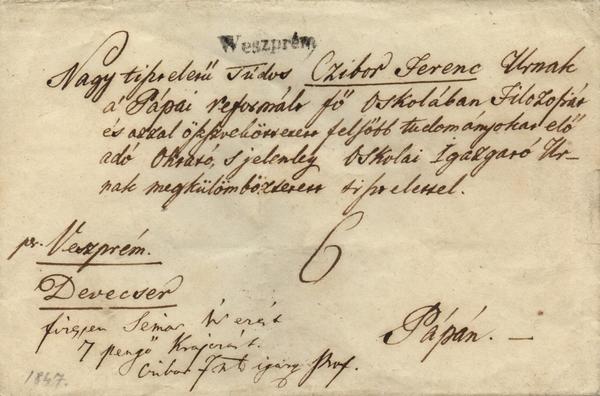 Weszprém
Nagy tiszteletű Tudós Czibor Ferenc Urnak
a' Pápai reformált fő Oskolában Filozofiát
és azzal öszvekötött felsőbb tudományokat elő
adó Oktató, s jelenleg Oskolai Igazgató Ur-
nak megkülömböztetett tisztelettel.
per. Veszprém.
6
Devecser
Pápán. —
7 pengő Krajcárt.
Czibor igazg Prof.
1847.